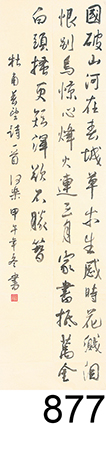 國破山河在春城草木生感時花濺泪
恨别鳥驚心烽火連三月家書抵萬金
白頭搔更短渾欲不勝簪
杜甫春望詩一首 甲午年冬書
877